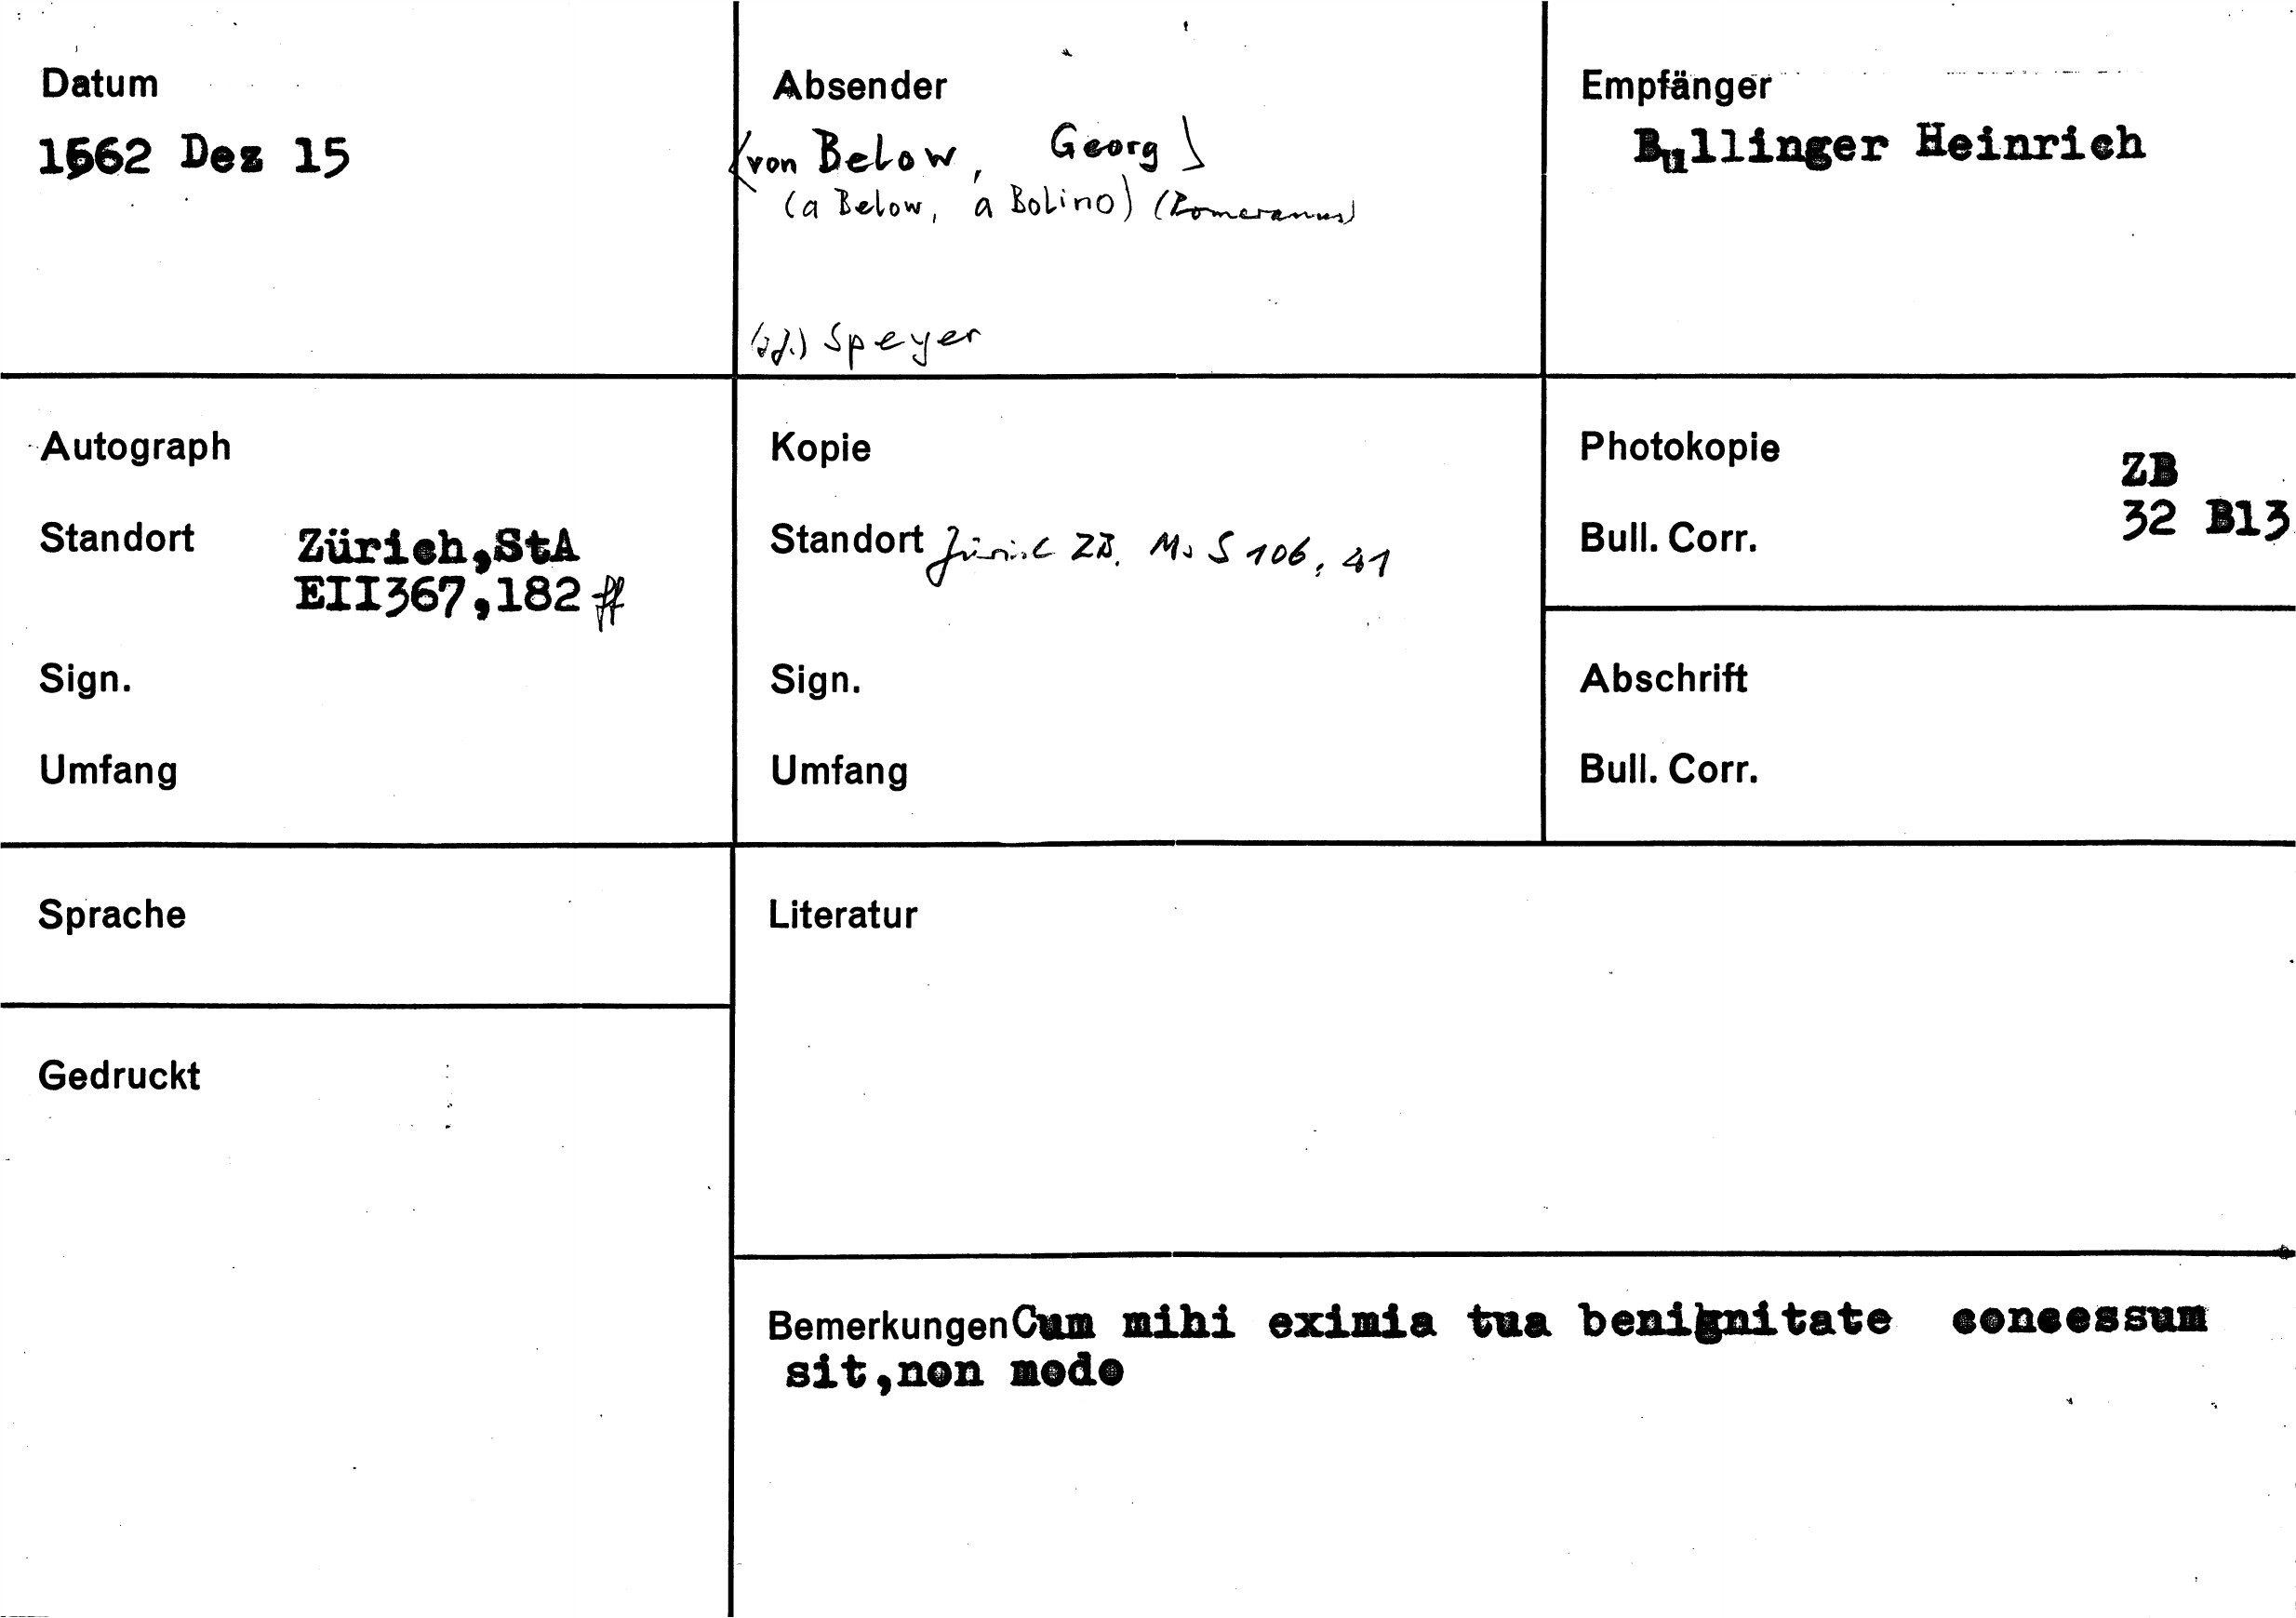 Datum
1562 Dez 15
Absender
(von Below, Georg)
(a Below, a Bolino) (Pomeranus)
Speyer
Empfänger
Bullinger Heinrich
Autograph
Standort Zürich,StA
EII367,182 ff
Sign.
Umfang
Kopie
Standort Zürich ZB, Ms S 106, 41
Sign.
Umfang
Photokopie
ZB
Bull. Corr. 32 B13
Abschrift
Bull. Corr.
Sprache
Literatur
Gedruckt
Bemerkungen Cum mihi eximia tua benignitate concessum
sit,non modo